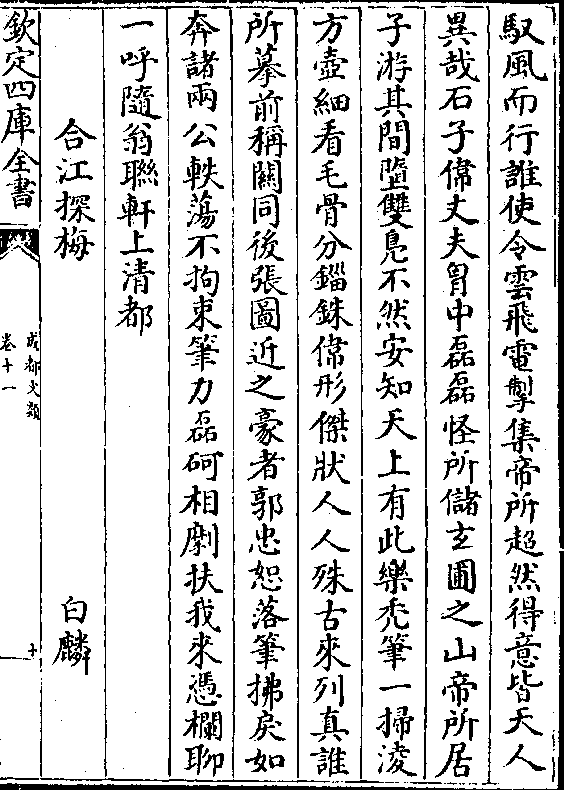 馭風而行誰使令雲飛電掣集帝所超然得意皆天人
異哉石子偉丈夫胷中磊磊怪所儲玄圃之山帝所居
子游其間墮雙鳧不然安知天上有此樂禿筆一掃淩
方壺細看毛骨分錙銖偉形傑狀人人殊古來列真誰
所摹前稱關同後張圖近之豪者郭忠恕落筆拂戾如
奔諸兩公軼蕩不拘束筆力磊砢相劘扶我來憑欄聊
一呼隨翁聯軒上清都
合江探梅 白麟
欽定四庫全書
成都文類
卷十一
十